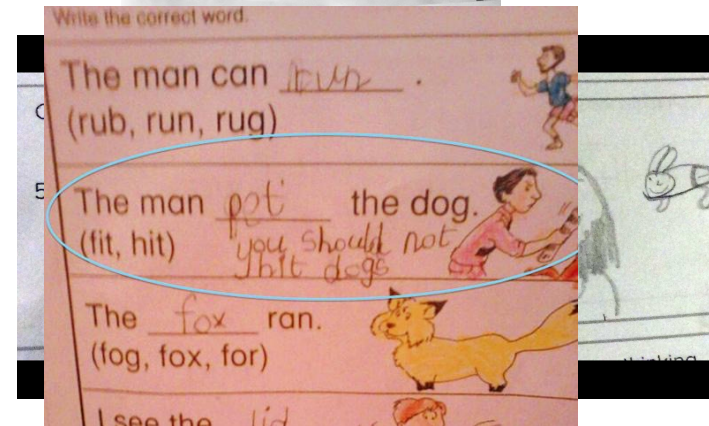 Write the correct word.
The man can run .
(rub, run, rug)
5
The man pot the dog.
(fit, hit) you should not
hit dogs
The fox ran.
(fog, fox, for)
thinking
I see the lid